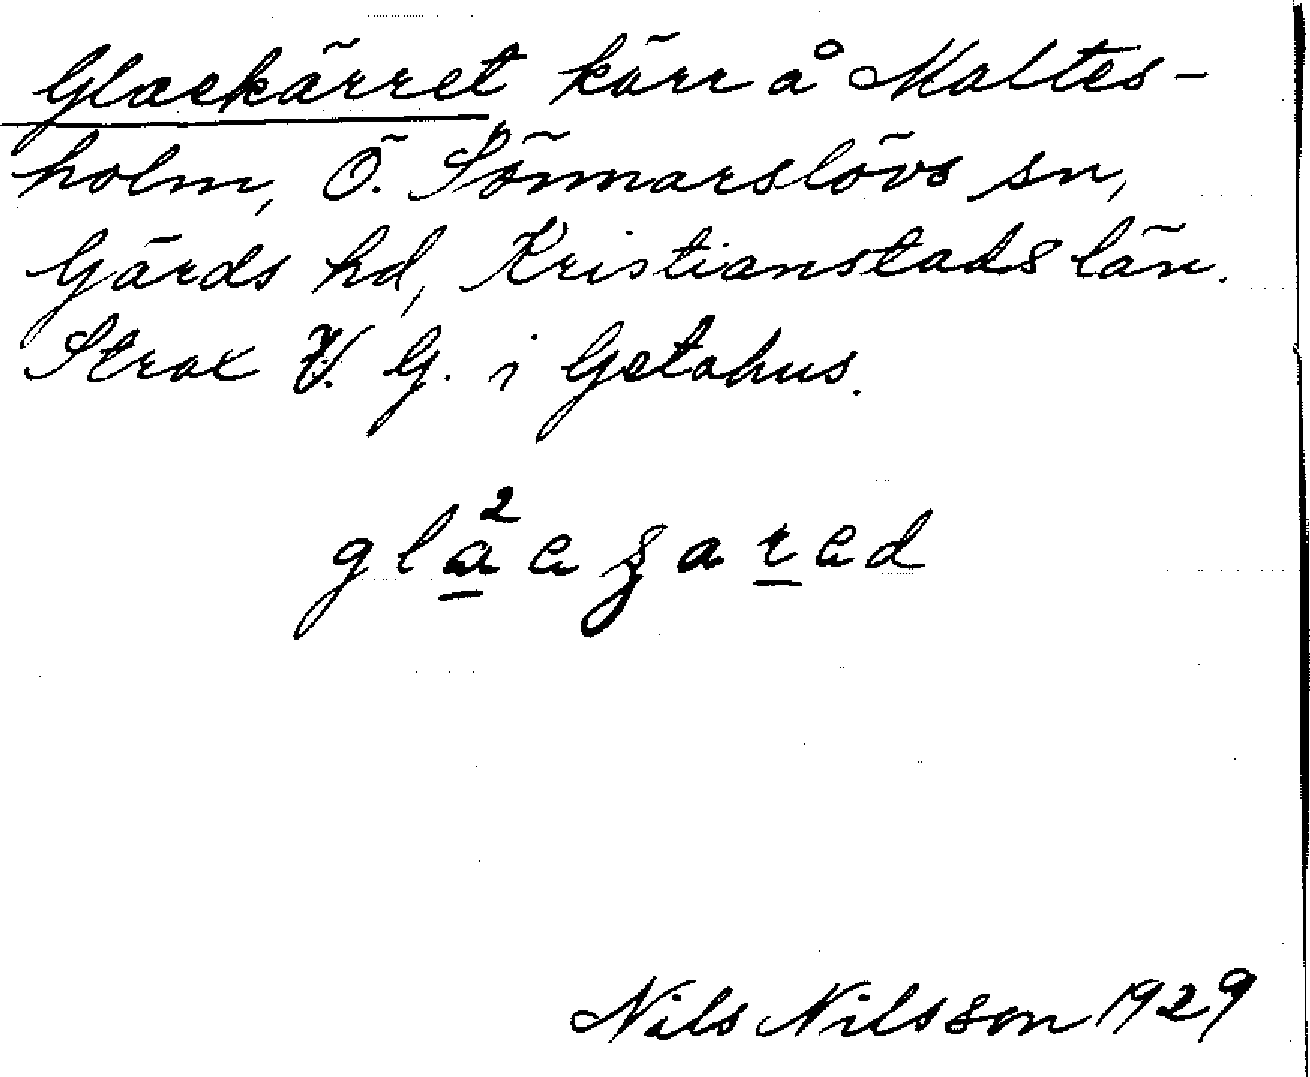 Glaekärret kärr å Maltes-
holm, Ö. Sönnarslövs sn,
Gärds hd, Kristianstads län.
Strax V. G. i Getahus.
gla²eʒared
Nils Nilsson 1929